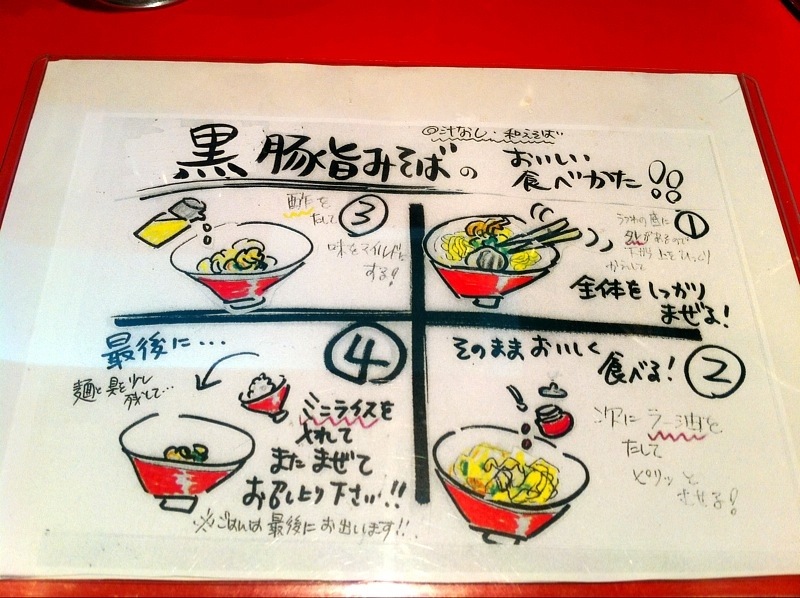 ◎汁なし・和えそば
黒豚旨みそばの
おいしい
食べかた!!
①
うつわの底に
タレがあるので
下から上にひっくり
かえして
全体をしっかり
まぜる!
そのままおいしく
食べる!
②
次にラー油を
たして
ピリッと
させる!
③
酢を
たして
味をマイルドに
する!
④
最後に…
麺と具を少し
残して…
ミニライスを
入れて
またまぜて
お召し上り下さい!!
※ごはんは最後にお出います!!